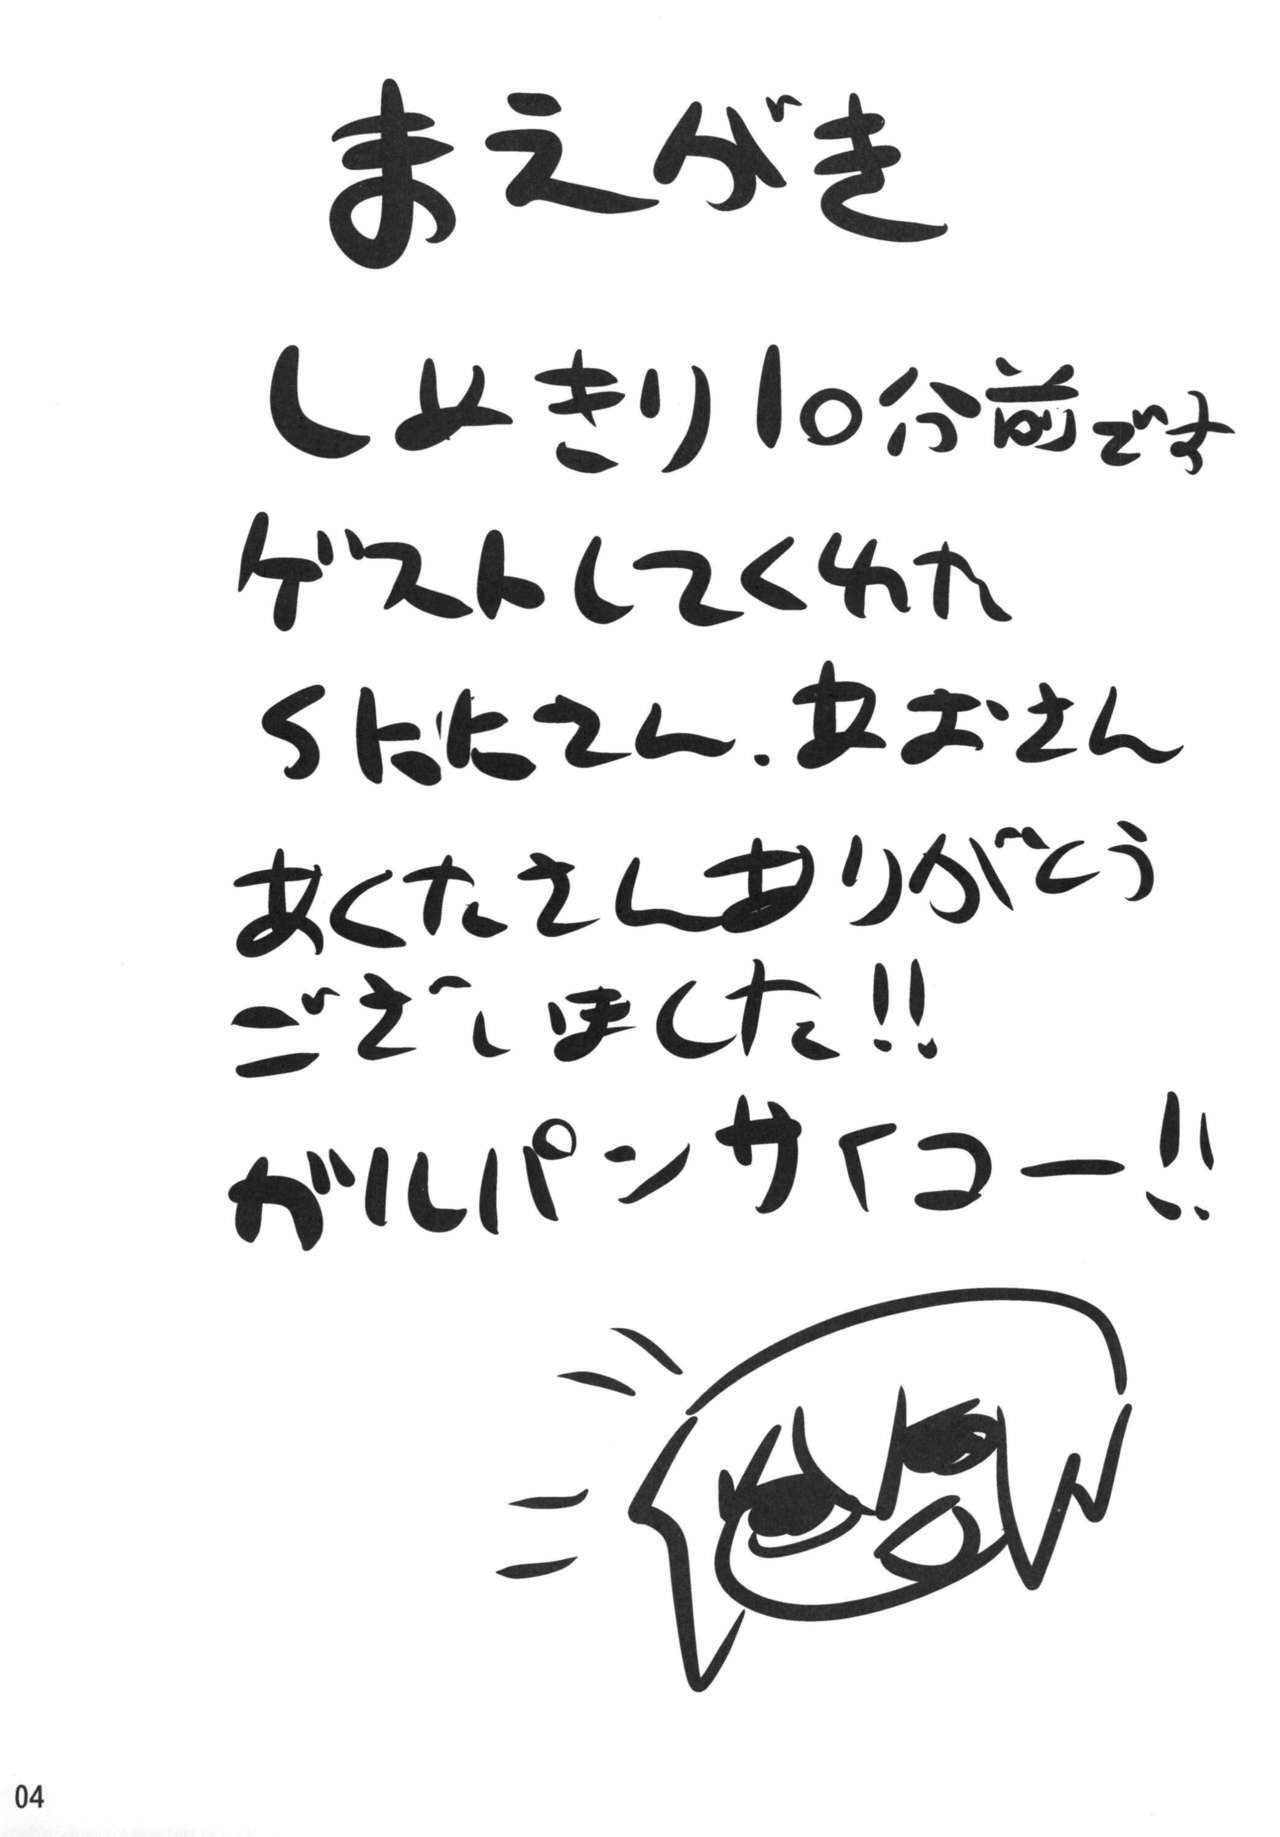 まえがき
しめきり10分前です
ゲストしてくれた
Skkさん、あおさん
あくたさんありがとう
ございました!!
ガルパンサイコー!!
04